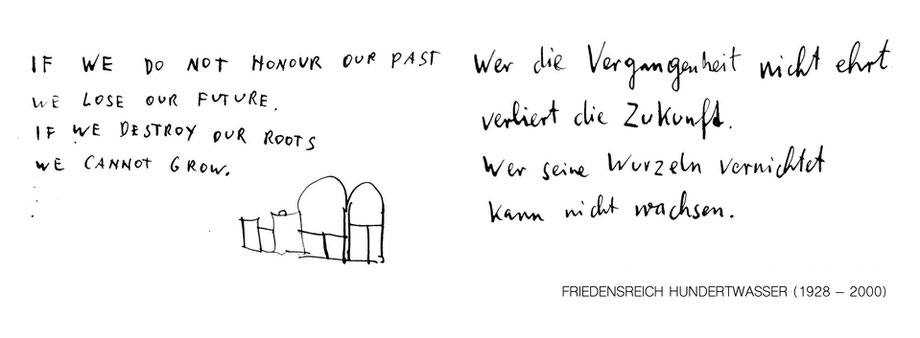 IF WE DO NOT HONOUR OUR PAST
WE LOSE OUR FUTURE.
IF WE DESTROY OUR ROOTS
WE CANNOT GROW.
Wer die Vergangenheit nicht ehrt
verliert die Zukunft.
Wer seine Wurzeln vernichtet
kann nicht wachsen.
FRIEDENSREICH HUNDERTWASSER (1928 – 2000)